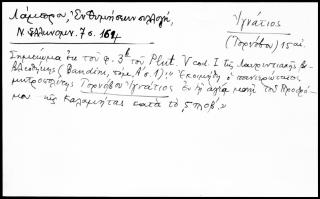 Λάμπρου, Ἐνθυμήσεων συλλογή,
Ν. Ἑλληνομν. 7 σ. 164
Ἰγνάτιος
(Τορνόβου) 15 αἰ.
Σημείωμα ἐκ τοῦ φ. 3β τοῦ Plut. V cod. I τῆς Λαυρεντιακῆς βι-
βλιοθήκης (Bandini, τόμ. Α' σ. 1): « Ἐκοιμήθη ὁ πανιερώτατος
μητροπολίτης Τορνόβου Ἰγνάτιος ἐν τῇ ἁγίᾳ μονῇ τοῦ Προδρό-
μου τῆς κατὰ τὸ